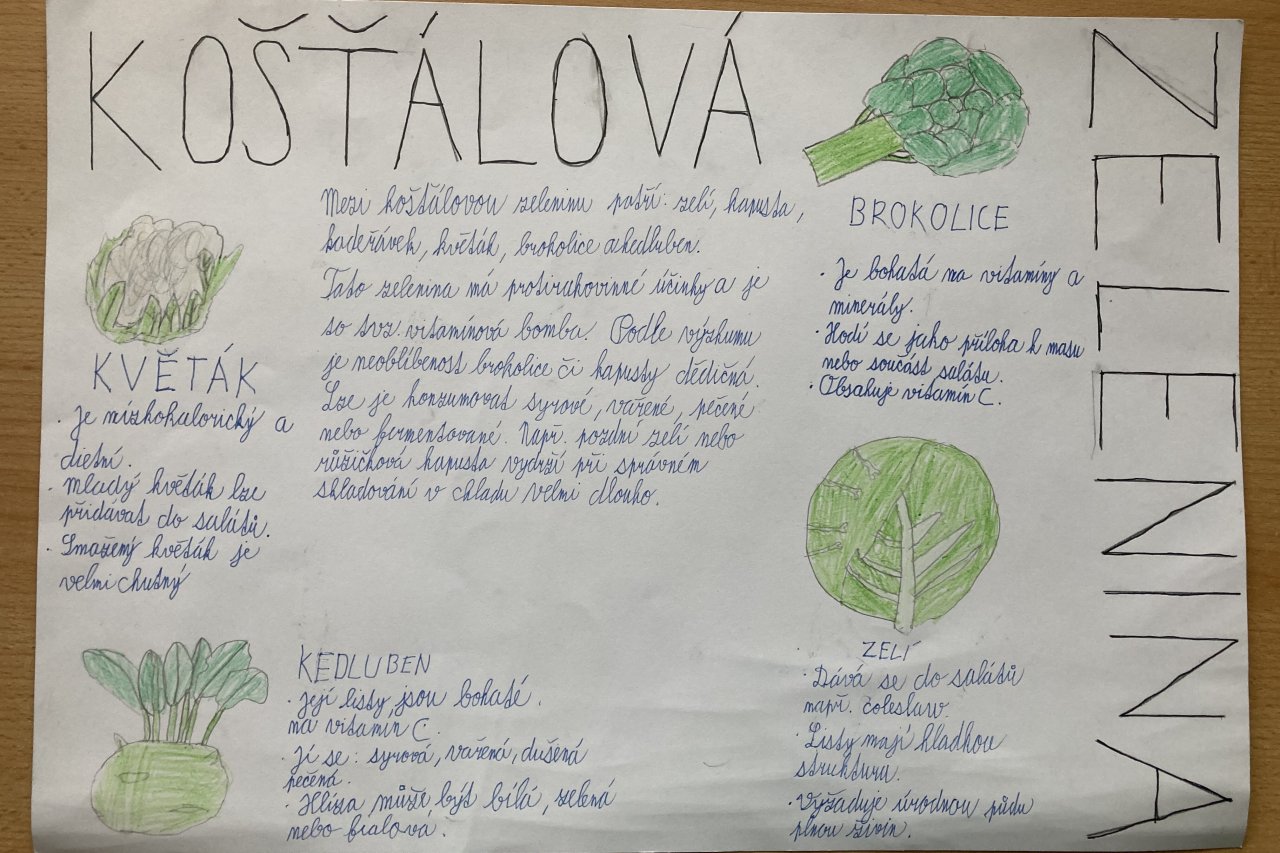 KOŠŤÁLOVÁ
ZELENINA
Mezi košťálovou zeleninu patří: zelí, kapusta,
kadeřávek, květák, brokolice a kedluben.
Tato zelenina má protirakovinné účinky a je
to tvz. vitamínová bomba. Podle výzkumu
je neoblíbenost brokolice či kapusty dědičná.
Lze je konzumovat syrové, vařené, pečené
nebo fermentované. Např. pozdní zelí nebo
růžičková kapusta vydrží při správném
skladování v chladu velmi dlouho.
KVĚTÁK
· Je nízkokalorický a
dietní.
· Mladý květák lze
přidávat do salátů.
· Smažený květák je
velmi chutný
BROKOLICE
· Je bohatá na vitamíny a
minerály.
· Hodí se jako příloha k masu
nebo součást salátu.
· Obsahuje vitamín C.
KEDLUBEN
· Její listy jsou bohaté.
na vitamín C.
· Jí se: syrová, vařená, dušená
pečená.
· Hlíza může být bílá, zelená
nebo fialová.
ZELÍ
· Dává se do salátů
např. coleslaw.
· Listy mají hladkou
strukturu.
· Vyžaduje úrodnou půdu
plnou živin.